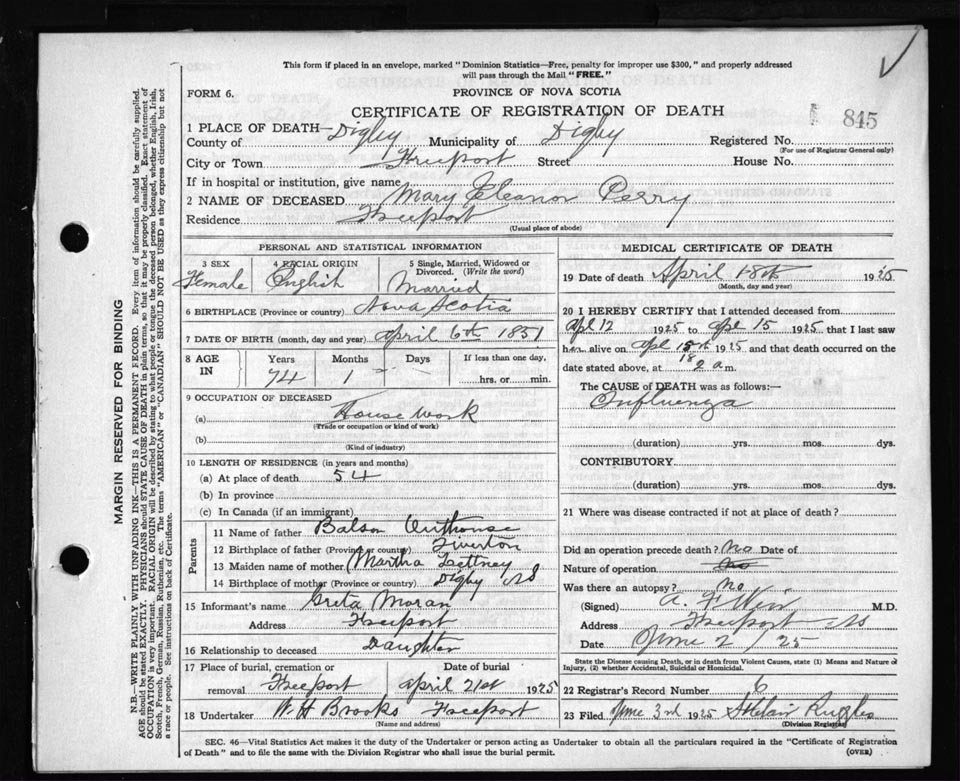 This form if placed in an envelope, marked "Dominion Statistics—Free, penalty for improper use $300," and properly addressed
will pass through the Mail "FREE."
FORM 6.
PROVINCE OF NOVA SCOTIA
CERTIFICATE OF REGISTRATION OF DEATH
845
1 PLACE OF DEATH—
County of Digby Municipality of Digby Registered No.
(For use of Registrar General only)
City or Town Freeport Street House No.
If in hospital or institution, give name
2 NAME OF DECEASED Mary Eleanor Perry
Residence Freeport
(Usual place of abode)
PERSONAL AND STATISTICAL INFORMATION
3 SEX 4 RACIAL ORIGIN 5 Single, Married, Widowed or Divorced. (Write the word)
Female English Married
6 BIRTHPLACE (Province or country) Nova Scotia
7 DATE OF BIRTH (month, day and year) April 6th 1851
8 AGE IN Years Months Days If less than one day,
74 1 hrs. or min.
9 OCCUPATION OF DECEASED
(a) House work
(Trade or occupation or kind of work)
(b)
(Kind of industry)
10 LENGTH OF RESIDENCE (in years and months)
(a) At place of death 54
(b) In province
(c) In Canada (if an immigrant)
Parents
11 Name of father Balson Outhouse
12 Birthplace of father (Province or country) Tiverton
13 Maiden name of mother Martha Lettney
14 Birthplace of mother (Province or country) Digby NS
15 Informant's name Greta Moran
Address Freeport
16 Relationship to deceased Daughter
17 Place of burial, cremation or removal Freeport Date of burial April 21st 1925
18 Undertaker W. H Brooks Freeport
(Name and address)
MEDICAL CERTIFICATE OF DEATH
19 Date of death April 18th 1925
(Month, day and year)
20 I HEREBY CERTIFY that I attended deceased from
Apl 12 1925 to Apl 15 1925 that I last saw
her alive on Apl 15th 1925 and that death occurred on the
18
date stated above, at 2 a m.
The CAUSE of DEATH was as follows:—
Influenza
(duration) yrs. mos. dys.
CONTRIBUTORY
(duration) yrs. mos. dys.
21 Where was disease contracted if not at place of death?
Did an operation precede death? No Date of
Nature of operation
Was there an autopsy? no
(Signed) A. F Weir M.D.
Address Freeport NS
Date June 2/25
State the Disease causing Death, or in death from Violent Causes, state (1) Means and Nature of
Injury, (2) whether Accidental, Suicidal or Homicidal.
22 Registrar's Record Number 6
23 Filed June 3rd 1925 Ruggles
(Division Registrar)
SEC. 46—Vital Statistics Act makes it the duty of the Undertaker or person acting as Undertaker to obtain all the particulars required in the "Certificate of Registration
of Death" and to file the same with the Division Registrar who shall issue the burial permit. (OVER)
MARGIN RESERVED FOR BINDING
N.B.—WRITE PLAINLY WITH UNFADING INK—THIS IS A PERMANENT RECORD. Every item of information should be carefully supplied.
AGE should be stated EXACTLY. PHYSICIANS should STATE CAUSE OF DEATH in plain terms, so that it may be properly classified. Exact statement of
OCCUPATION is very important. RACIAL ORIGIN will be described by stating to what people or tongue the deceased person belonged, whether English, Irish,
Scotch, French, German, Russian, Ruthenian, etc. The terms "AMERICAN" or "CANADIAN" SHOULD NOT BE USED as they express citizenship but not
a race or people. See instructions on back of Certificate.